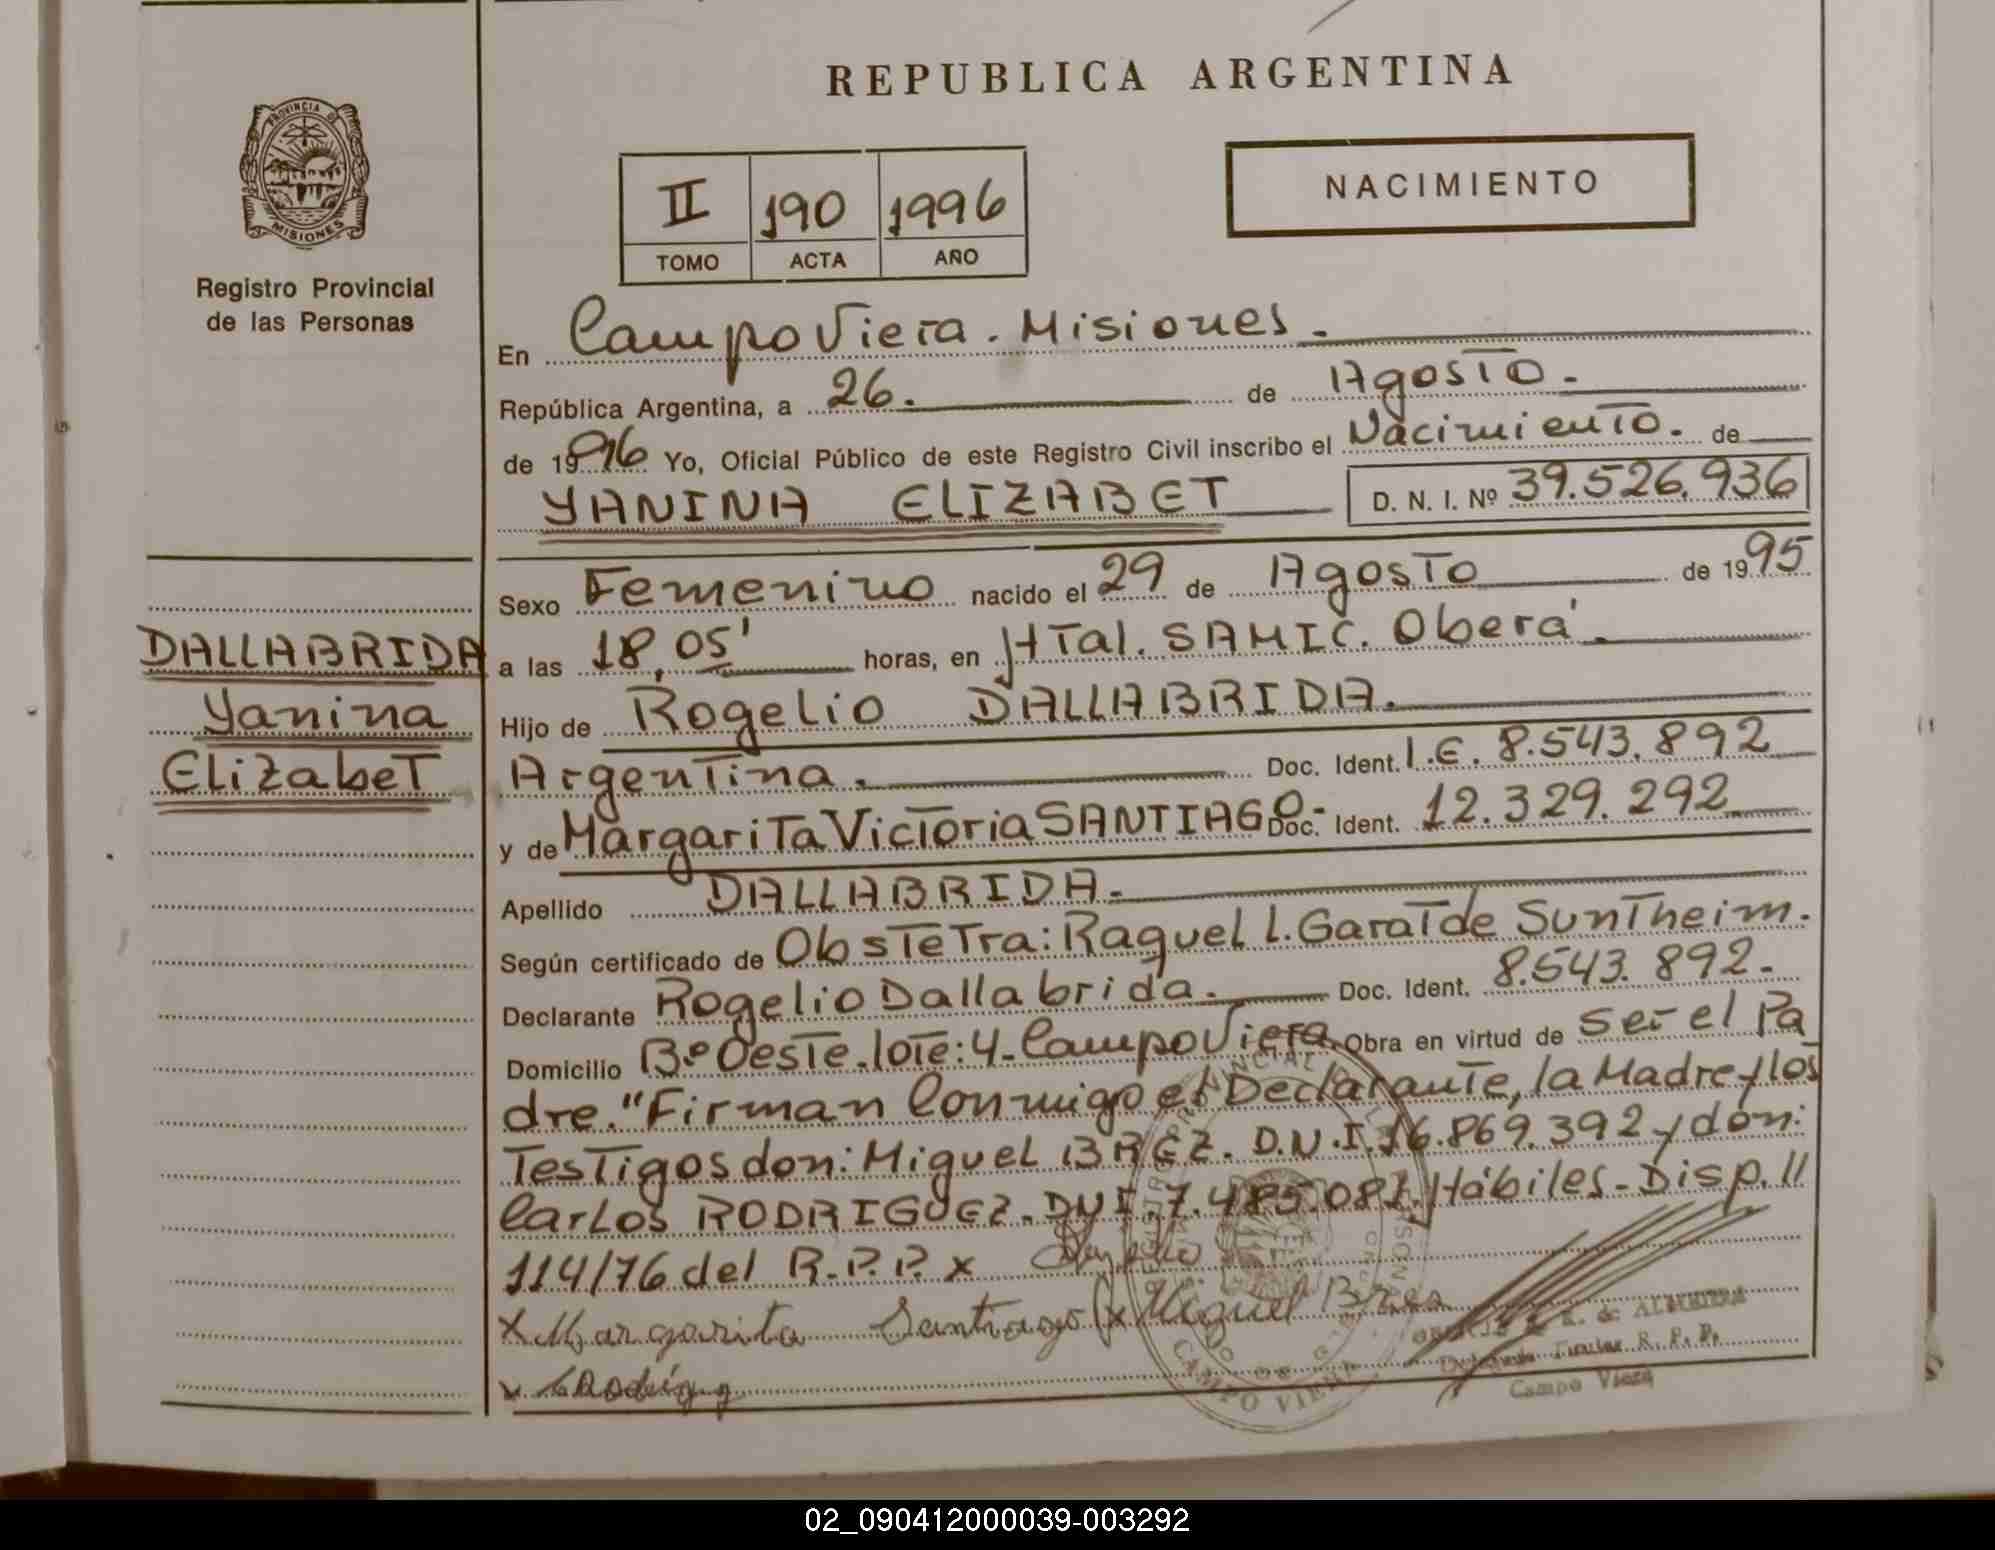 REPUBLICA ARGENTINA
PROVINCIA DE
MISIONES
Registro Provincial
de las Personas
II 190 1996
TOMO ACTA AÑO
NACIMIENTO
En Campo Viera. Misiones.
República Argentina, a 26. de Agosto.
de 1996 Yo, Oficial Público de este Registro Civil inscribo el Nacimiento. de
YANINA ELIZABET D. N. I. Nº 39.526.936
Sexo Femenino nacido el 29 de Agosto de 1995
DALLABRIDA
Yanina
Elizabet
a las 18,05' horas, en HTal. SAMIC. Oberá.
Hijo de Rogelio DALLABRIDA.
Argentina. Doc. Ident. L.E. 8.543.892
y de Margarita Victoria SANTIAGO.- Doc. Ident. 12.329.292
Apellido DALLABRIDA.
Según certificado de Obstetra: Raquel L. Garat de Suntheim.
Declarante Rogelio Dallabrida. Doc. Ident. 8.543.892.
Domicilio Bº Oeste. lote: 4. Campo Viera. Obra en virtud de ser el Pa
dre." Firman Conmigo el Declarante, la Madre y los
Testigos don: Miguel BREZ. D.N.I. 16.869.392 y don:
Carlos RODRIGUEZ. DNI. 7.485.081. Hábiles. Disp. 11
114/76 del R.P.P. x
x Margarita Santiago x Miguel Brez
R. de
Titular R. P. P.
Campo Viera
CAMPO VIERA
02_090412000039-003292